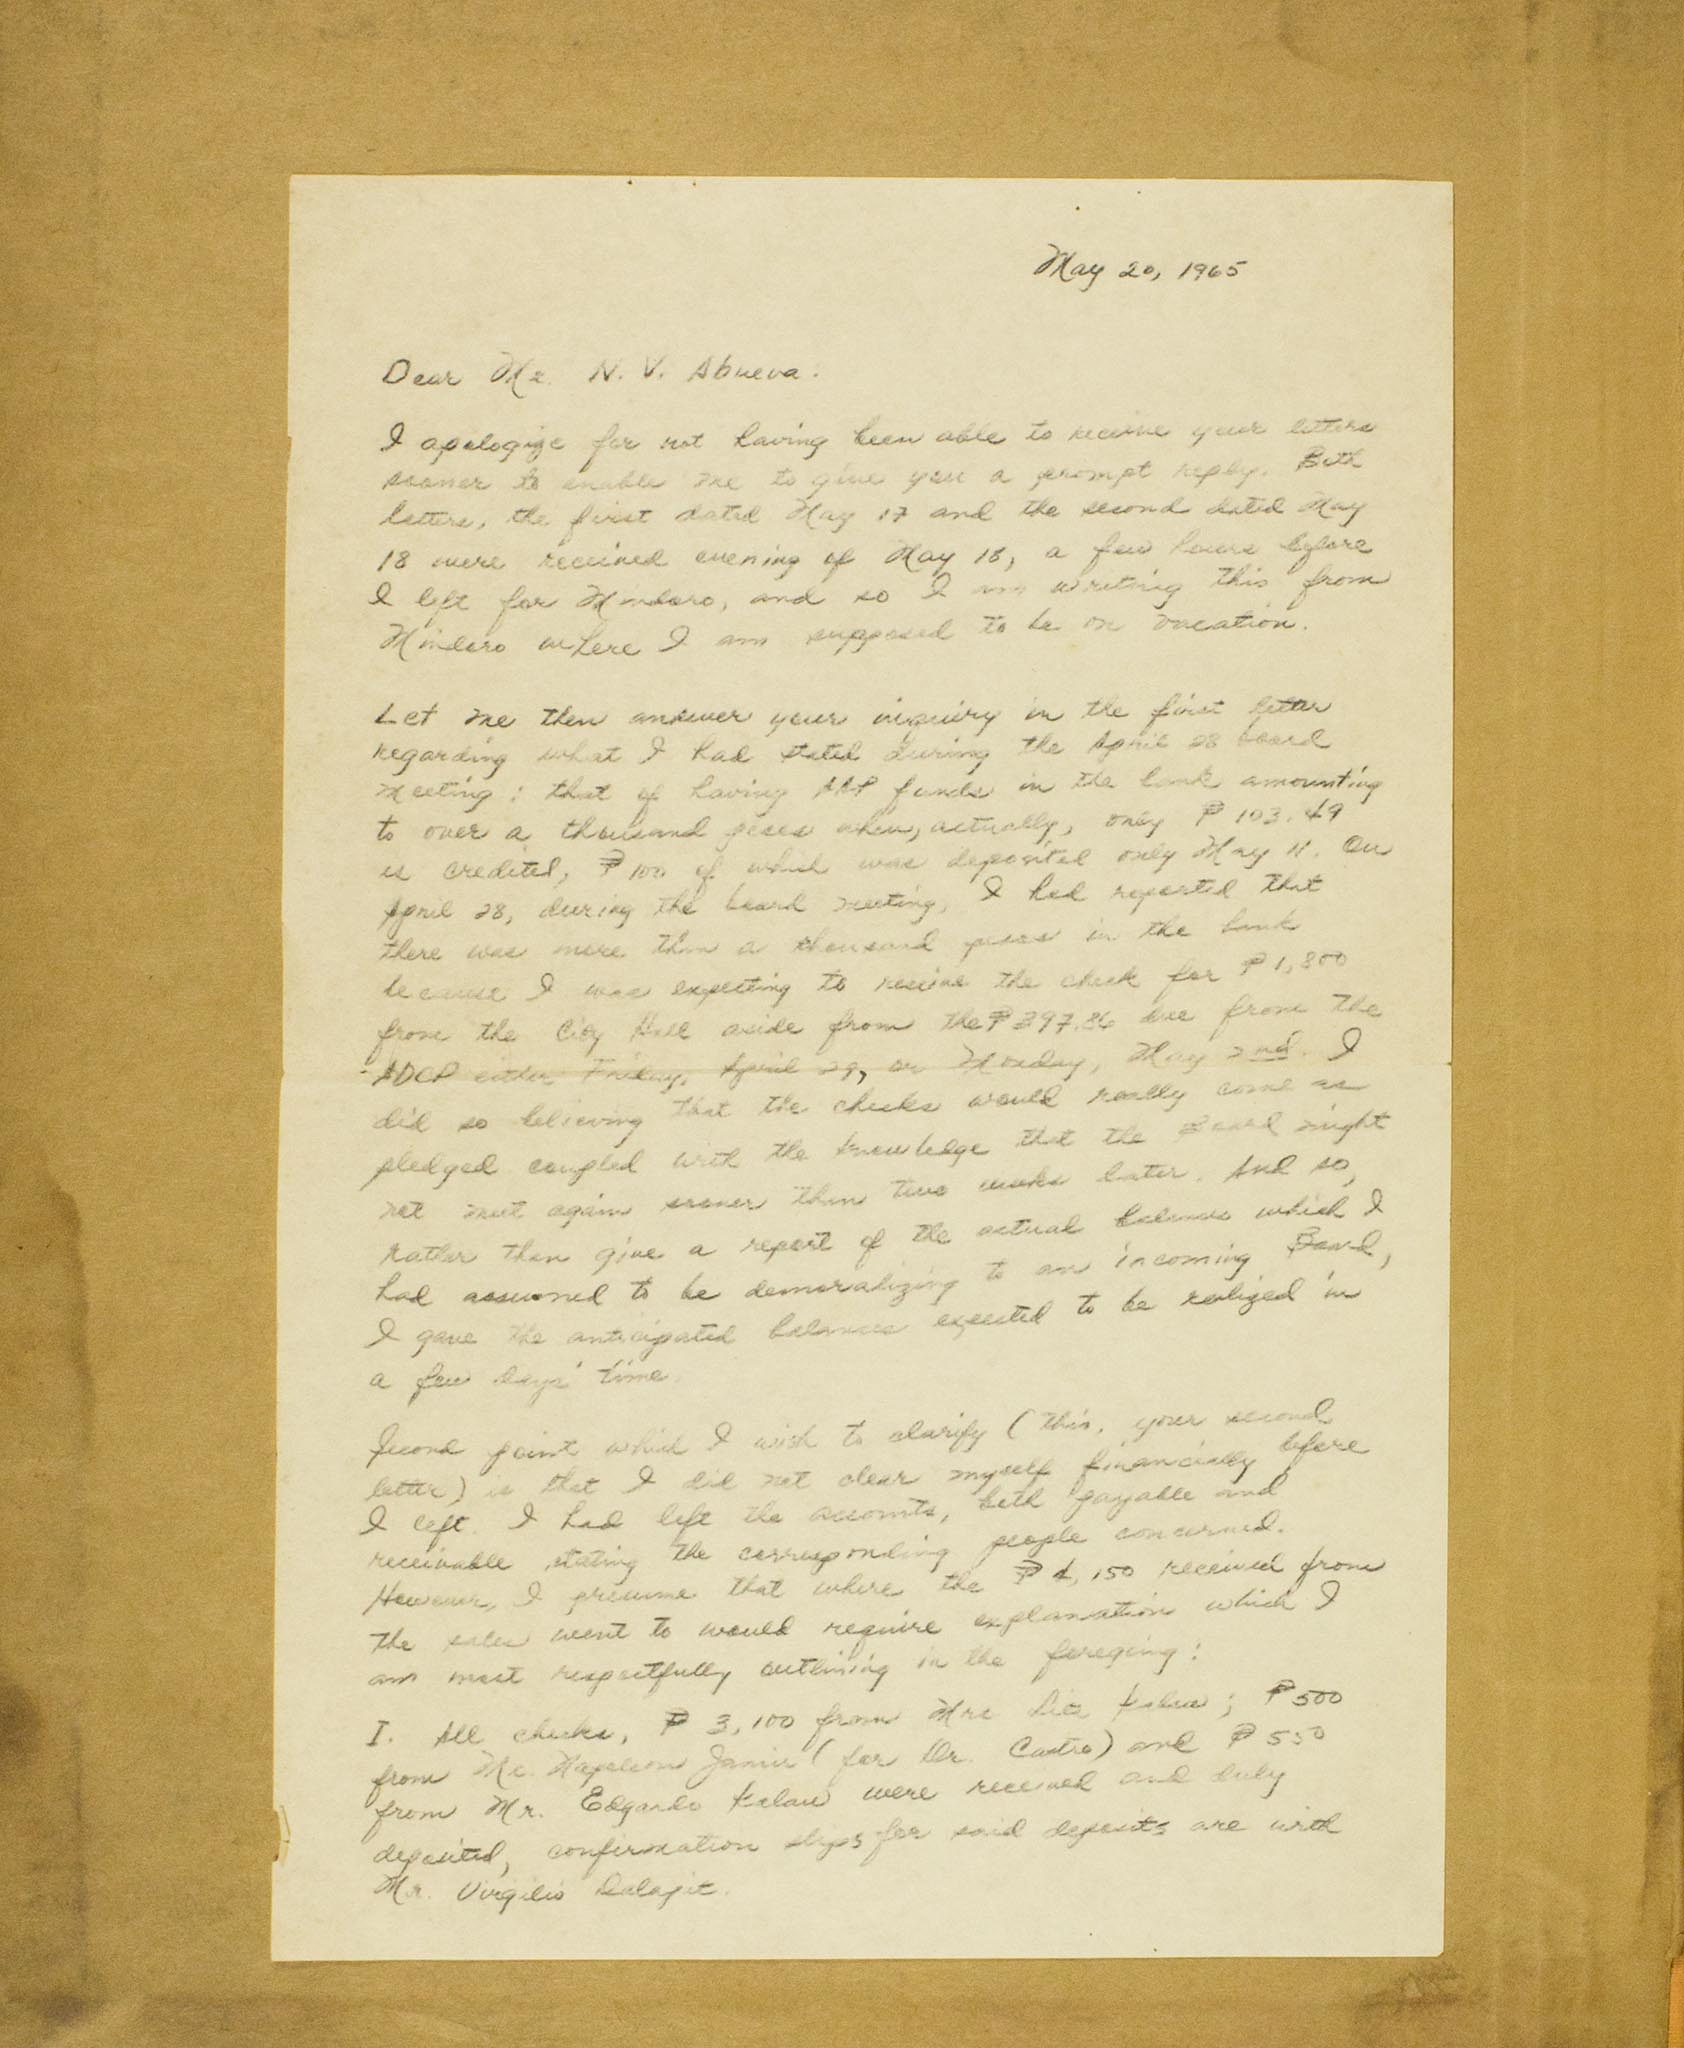 May 20, 1965
Dear Mr. N. V. Abueva:
I apologize for not having been able to receive your letters
sooner to enable me to give you a prompt reply. Both
letters, the first dated May 17 and the second dated May
18 were received evening of May 18, a few hours before
I left for Mindoro, and so I am writing this from
Mindoro where I am supposed to be on vacation.
Let me then answer your inquiry in the first letter
regarding what I had stated during the April 28 board
meeting: that of having AAP funds in the bank amounting
to over a thousand pesos when, actually, only ₱ 103.49
is credited, ₱ 100 of which was deposited only May 11. On
April 28, during the board meeting, I had reported that
there was more than a thousand pesos in the bank
because I was expecting to receive the check for ₱ 1,800
from the City Hall aside from the ₱ 397.86 due from the
ADCP either Friday, April 29, or Monday, May 2nd. I
did so believing that the checks would really come as
pledged coupled with the knowledge that the Board might
not meet again sooner than two weeks later. And so,
rather than give a report of the actual balance which I
had assumed to be demoralizing to an incoming Board,
I gave the anticipated balances expected to be realized in
a few days' time.
Second point which I wish to clarify (this, your second
letter) is that I did not clear myself financially before
I left. I had left the accounts, both payable and
receivable, stating the corresponding people concerned.
However, I presume that where the ₱ 4,150 received from
the sales went to would require explanation which I
am most respectfully outlining in the foregoing:
I. All checks, ₱ 3,100 from Mrs Kalaw; ₱ 500
from Mr. Napoleon Jamir (for Dr. Castro) and ₱ 550
from Mr. Edgardo Kalaw were received and duly
deposited, confirmation slips for said deposits are with
Mr. Virgilio Dalajit.